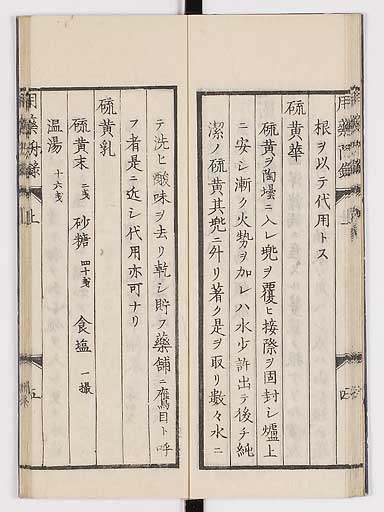 根ヲ以テ代用トス
硫黄華
硫黄ヲ陶壜ニ入レ兜ヲ覆ヒ接際ヲ固封シ爐上
ニ安シ漸ク火勢ヲ加レハ水少許出テ後チ純
潔ノ硫黄其兜ニ外リ著ク是ヲ取リ數々水ニ
テ洗ヒ酸味ヲ去リ乾シ貯フ藥舗ニ鷹目ト呼
フ者是ニ近シ代用亦可ナリ
硫黄乳
硫黄末 二戔 砂糖 四十戔 食塩 一撮
温湯 十六戔